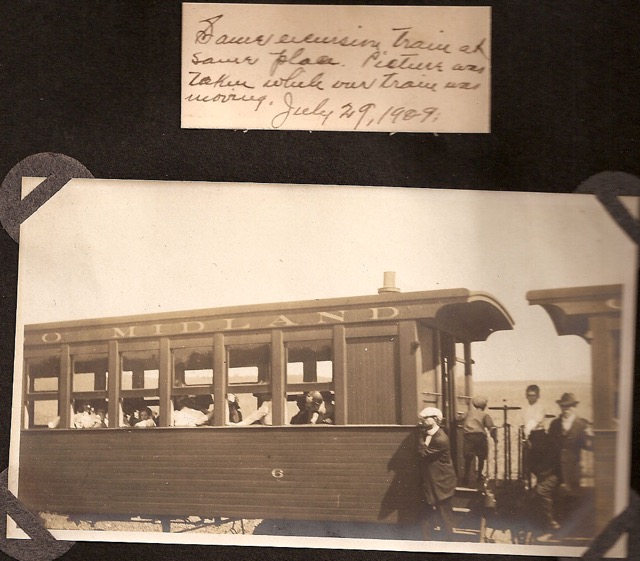 Same excursion train at
same place. Picture was
taken while our train was
moving. July 29, 1909.
O MIDLAND
6